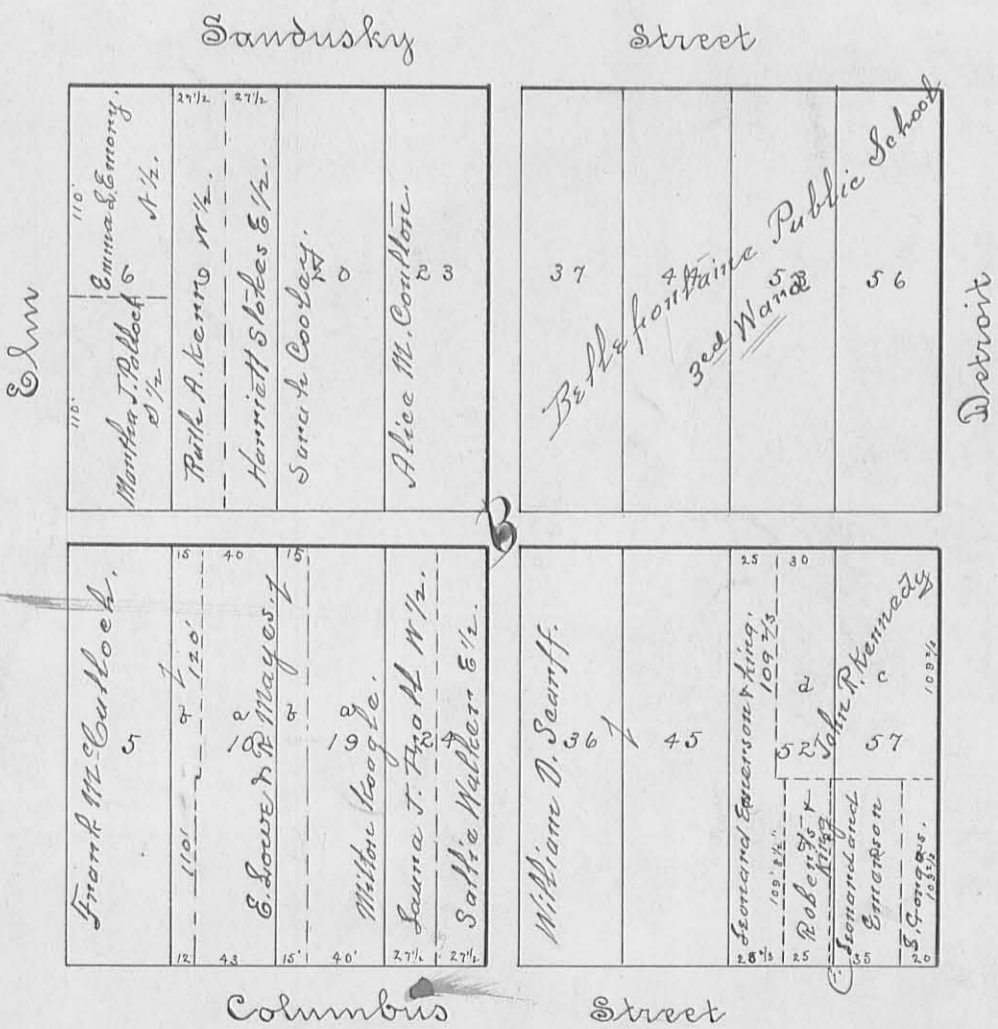 Sandusky Street
Elm
Detroit
110'
Emma S. Emory.
N 1/2.
6
110'
Martha J. Pollock
S 1/2
27 1/2
Ruth A. Kerr W 1/2.
27 1/2
Harriett Stokes E 1/2.
Sarah Cooley.
Alice M. Coulton.
2 3
37
44
53
56
Bellefontaine Public School
3ed Ward
B
Frank McCulloch.
5
15
40
15
120'
110'
b
a
b
a
E. Lowe & R Mayes.
18
19
Milton Slagle.
Launa T. Knott W 1/2.
24
Sallie Walker E 1/2.
12
43
15'
40'
27 1/2
27 1/2
William D. Scarff.
36
45
25
30
Leonard Emerson & King.
109 2/3
109' 8 1/2"
a
52
John R. Kennedy
c
57
109 2/3
Roberts &
King
Leonard and
Emerson
109 2/3
28 1/3
25
35
20
Columbus Street